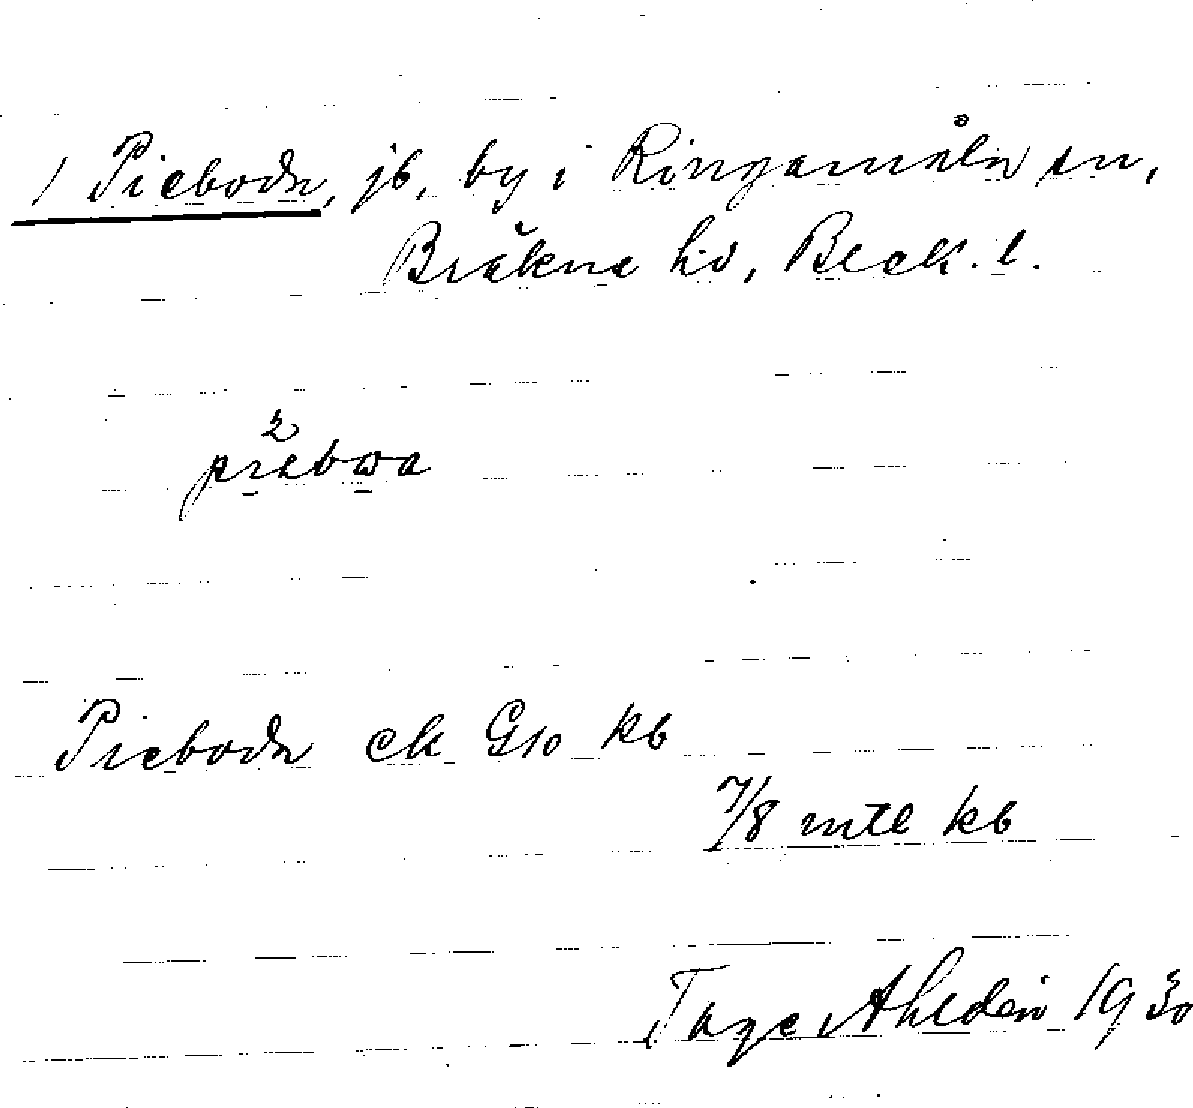 1 Pieboda, jb, by i Ringamåla sn,
Bräkne hd, Blek. l.
Pieboda ek G10 kb
7/8 mtl kb
Tage Ahldén 1930